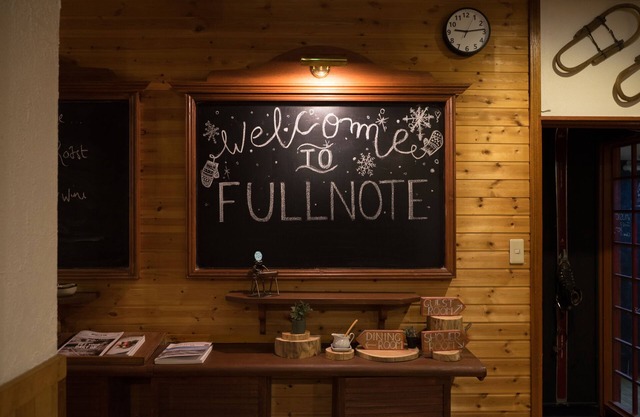 welcome
TO
FULLNOTE
Roast
GUEST
DINING
ROOM